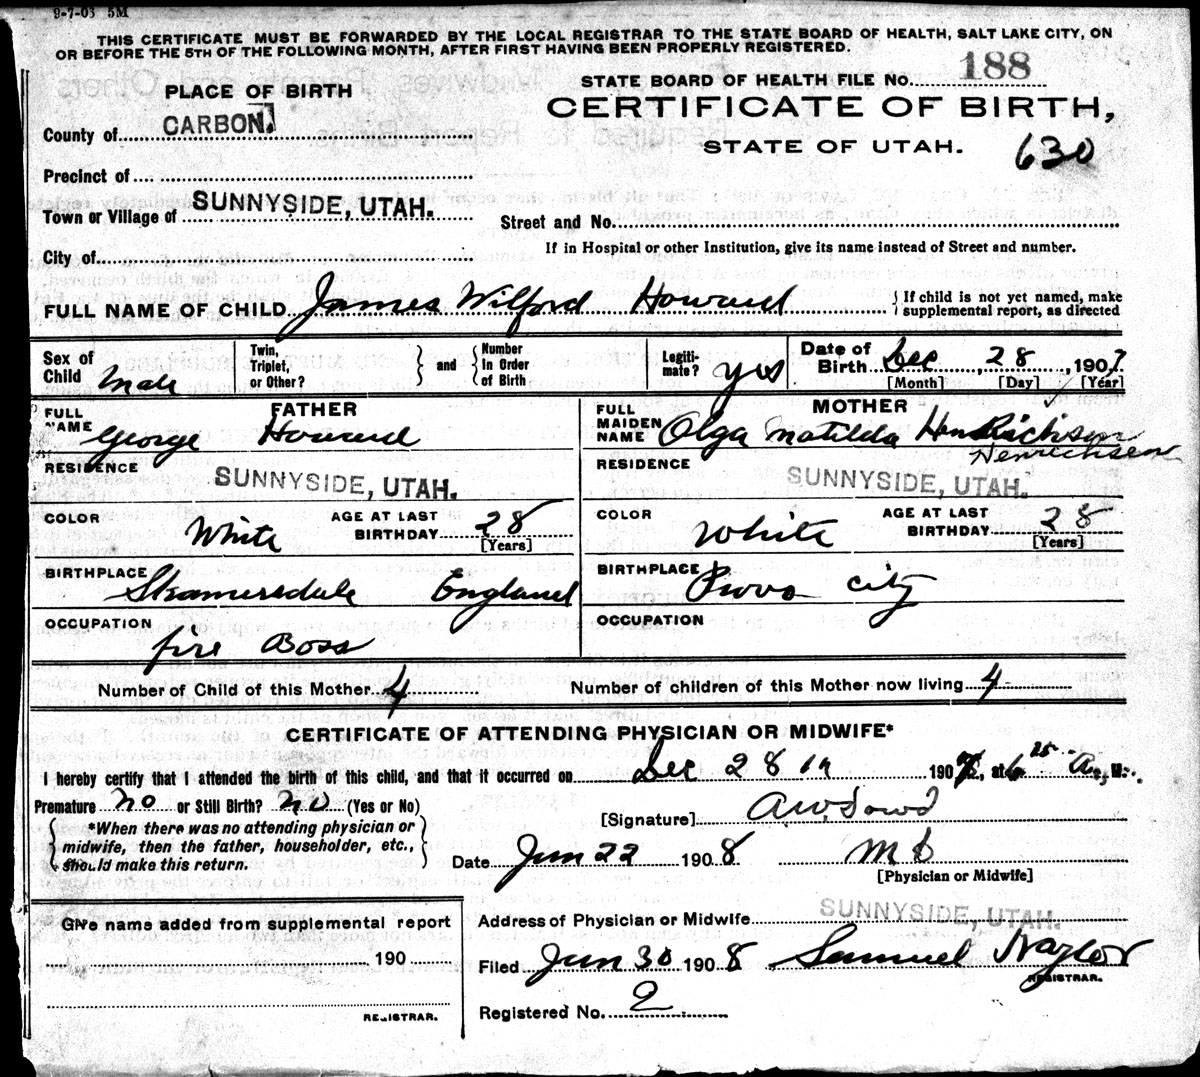 9-7-03 5M
THIS CERTIFICATE MUST BE FORWARDED BY THE LOCAL REGISTRAR TO THE STATE BOARD OF HEALTH, SALT LAKE CITY, ON
OR BEFORE THE 5TH OF THE FOLLOWING MONTH, AFTER FIRST HAVING BEEN PROPERLY REGISTERED.
STATE BOARD OF HEALTH FILE No. 188
PLACE OF BIRTH
CERTIFICATE OF BIRTH,
County of CARBON.
STATE OF UTAH. 630
Precinct of
Town or Village of SUNNYSIDE, UTAH.
Street and No.
City of
If in Hospital or other Institution, give its name instead of Street and number.
FULL NAME OF CHILD James Wilford Howard { If child is not yet named, make
supplemental report, as directed
Sex of Child Male
Twin, Triplet, or Other? } and { Number In Order of Birth
Legiti-mate? yes
Date of Birth Dec 28, 1907
[Month] [Day] [Year]
FATHER
FULL NAME George Howard
MOTHER
FULL MAIDEN NAME Olga Matilda Henrichsen
Henrichsen
RESIDENCE SUNNYSIDE, UTAH.
RESIDENCE SUNNYSIDE, UTAH.
COLOR White AGE AT LAST BIRTHDAY 28 [Years]
COLOR White AGE AT LAST BIRTHDAY 28 [Years]
BIRTHPLACE England
BIRTHPLACE Provo City
OCCUPATION fire Boss
OCCUPATION
Number of Child of this Mother 4 Number of children of this Mother now living 4
CERTIFICATE OF ATTENDING PHYSICIAN OR MIDWIFE*
I hereby certify that I attended the birth of this child, and that it occurred on Dec 28 19 1907, at 6 25 A. M.
Premature no or Still Birth? no (Yes or No)
[Signature]
{ *When there was no attending physician or
midwife, then the father, householder, etc.,
should make this return. }
Date Jun 22 1908 M D
[Physician or Midwife]
Give name added from supplemental report
190
REGISTRAR.
Address of Physician or Midwife SUNNYSIDE, UTAH.
Filed Jun 30 1908 Samuel Naylor
REGISTRAR.
Registered No. 2